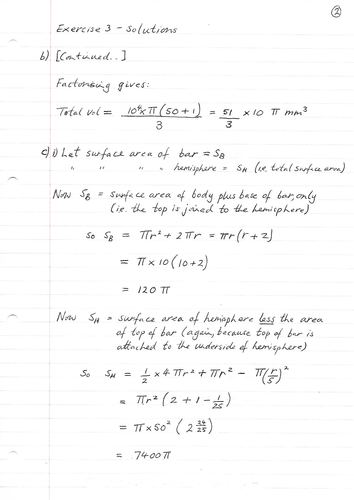 ②
Exercise 3 - Solutions
b) [Continued..]
Factorising gives:
Total vol = 10⁴ x π (50 + 1) / 3 = 51/3 x 10 π mm³
c) i) Let surface area of bar = S_B
" " " " hemisphere = S_H (i.e. total surface area)
Now S_B = surface area of body plus base of bar, only
(i.e. the top is joined to the hemisphere)
so S_B = πr² + 2πr = πr(r + 2)
= π x 10 (10 + 2)
= 120 π
Now S_H = surface area of hemisphere less the area
of top of bar (again, because top of bar is
attached to the underside of hemisphere)
so S_H = 1/2 x 4πr² + πr² - π(r/5)²
= πr² (2 + 1 - 1/25)
= π x 50² (2 24/25)
= 7400π